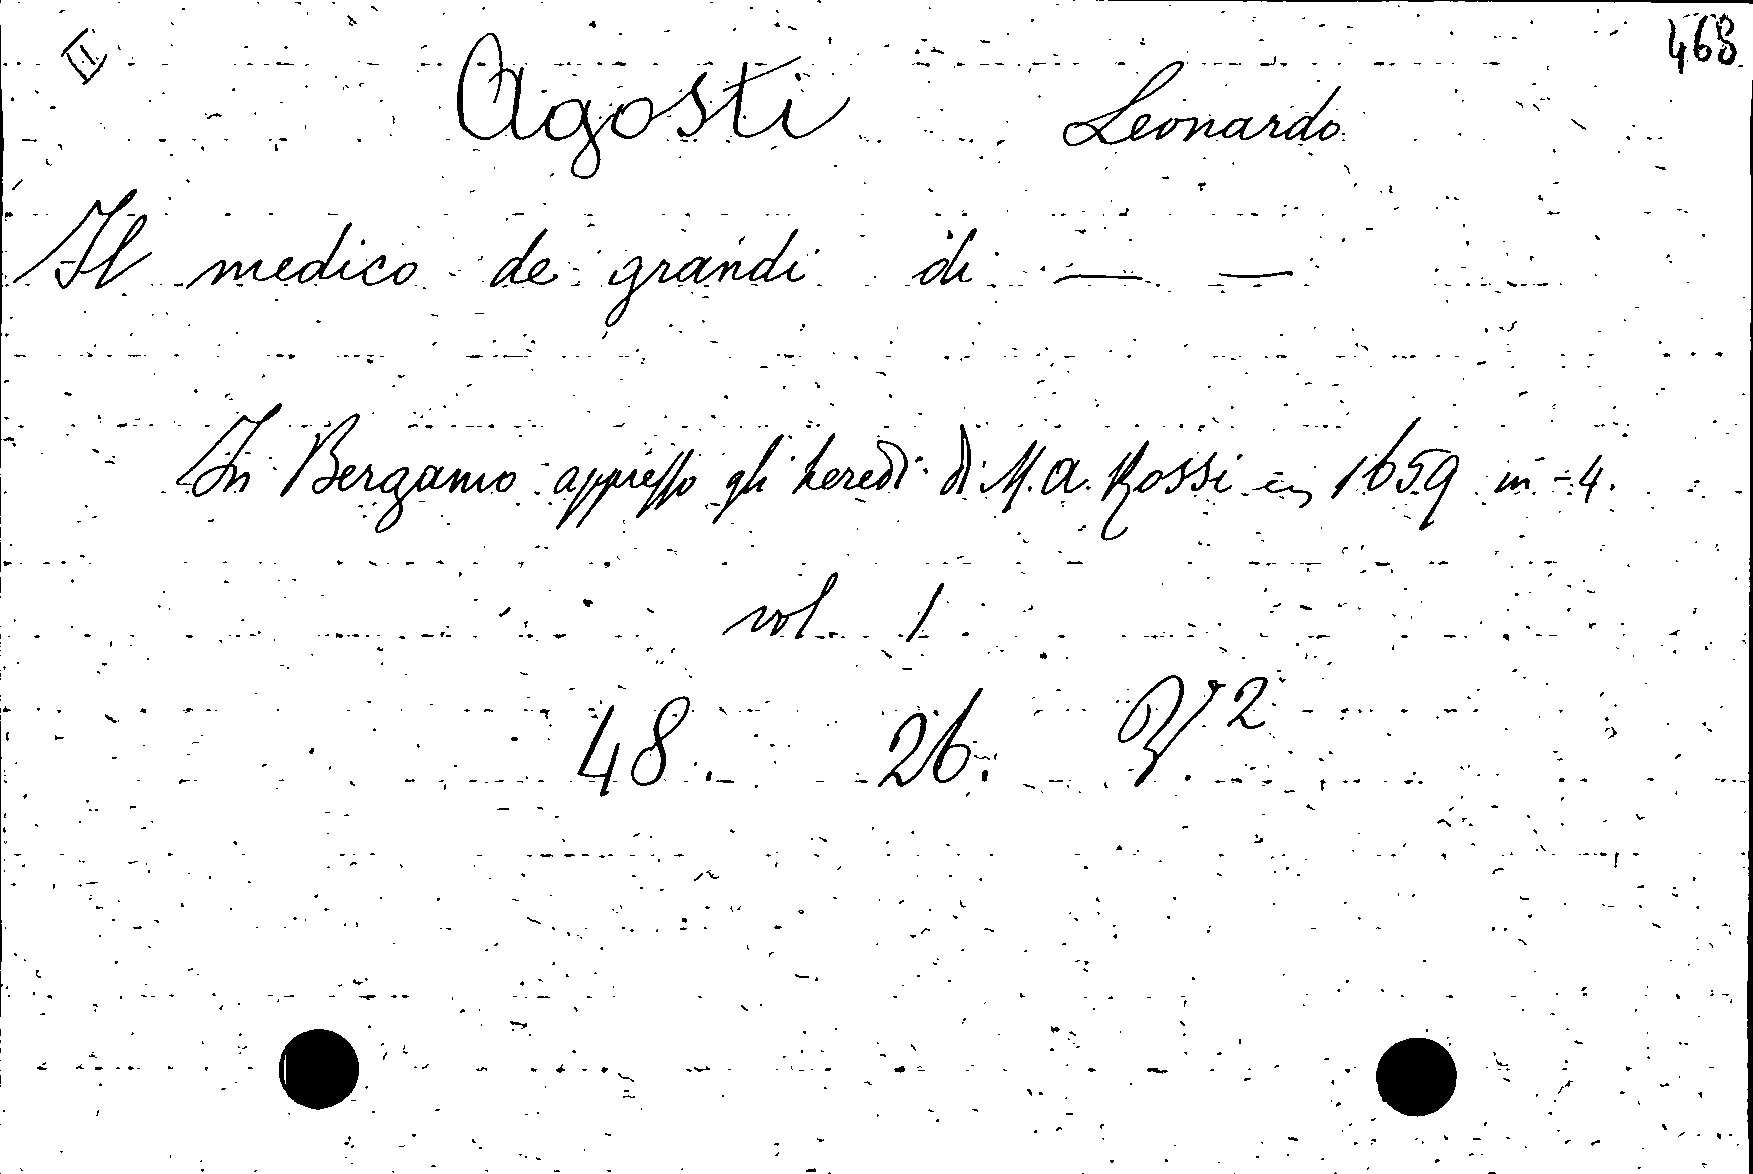 II 468
Agosti Leonardo
Il medico de grandi di — —
In Bergamo appresso gli heredi di M. A. Rossi 1659 in-4.
vol 1
48. 26. 2